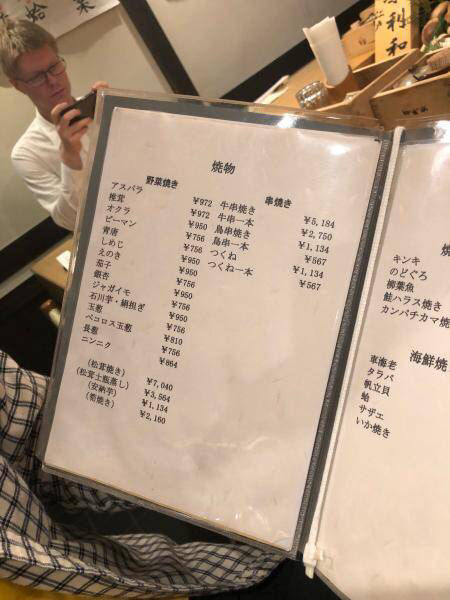 焼物
野菜焼き
アスパラ ¥972
椎茸 ¥972
オクラ ¥950
ピーマン ¥756
青唐 ¥950
しめじ ¥756
えのき ¥756
茄子 ¥950
銀杏 ¥950
ジャガイモ ¥950
石川芋・絹担ぎ ¥950
玉葱 ¥756
ペコロス玉葱 ¥810
長葱 ¥756
ニンニク ¥864
(松茸焼き) ¥7,040
(松茸土瓶蒸し) ¥3,564
(安納芋) ¥1,134
(菊焼き) ¥2,160
串焼き
牛串焼き ¥5,184
牛串一本 ¥2,750
鳥串焼き ¥1,134
鳥串一本 ¥567
つくね ¥1,134
つくね一本 ¥567
焼
キンキ
のどぐろ
柳葉魚
鮭ハラス焼き
カンパチカマ焼
海鮮焼
車海老
タラバ
帆立貝
蛤
サザエ
いか焼き
利和